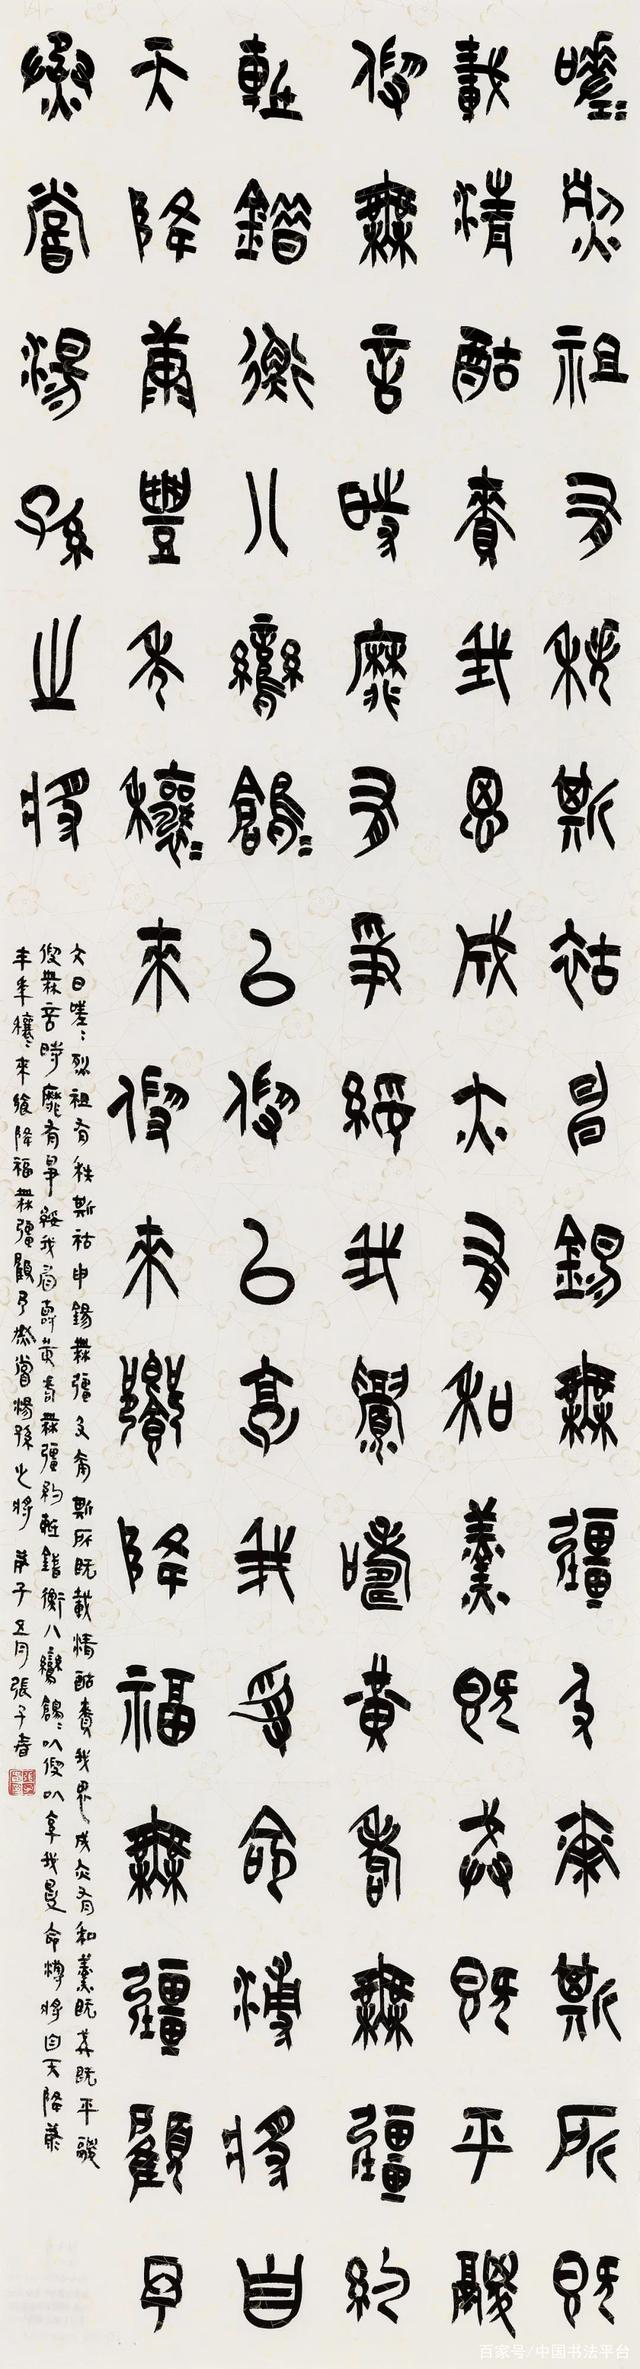 嗟嗟烈祖有秩斯祜申錫無疆及爾斯所既
載清酤賚我思成亦有和羹既戒既平鬷
假無言時靡有爭綏我眉壽黃耇無疆約
軧錯衡八鸞鶬鶬以假以享我受命溥將自
天降康豐年穰穰來假來饗降福無疆顧予
烝嘗湯孫之將
文曰嗟嗟烈祖有秩斯祜申錫無疆及爾斯所既載清酤賚我思成亦有和羹既戒既平鬷
假無言時靡有爭綏我眉壽黃耇無疆約軧錯衡八鸞鶬鶬以假以享我受命溥將自天降康
丰年穰穰來饗降福無疆顧予烝嘗湯孫之將 庚子五月張子春
百家号/中国书法平台